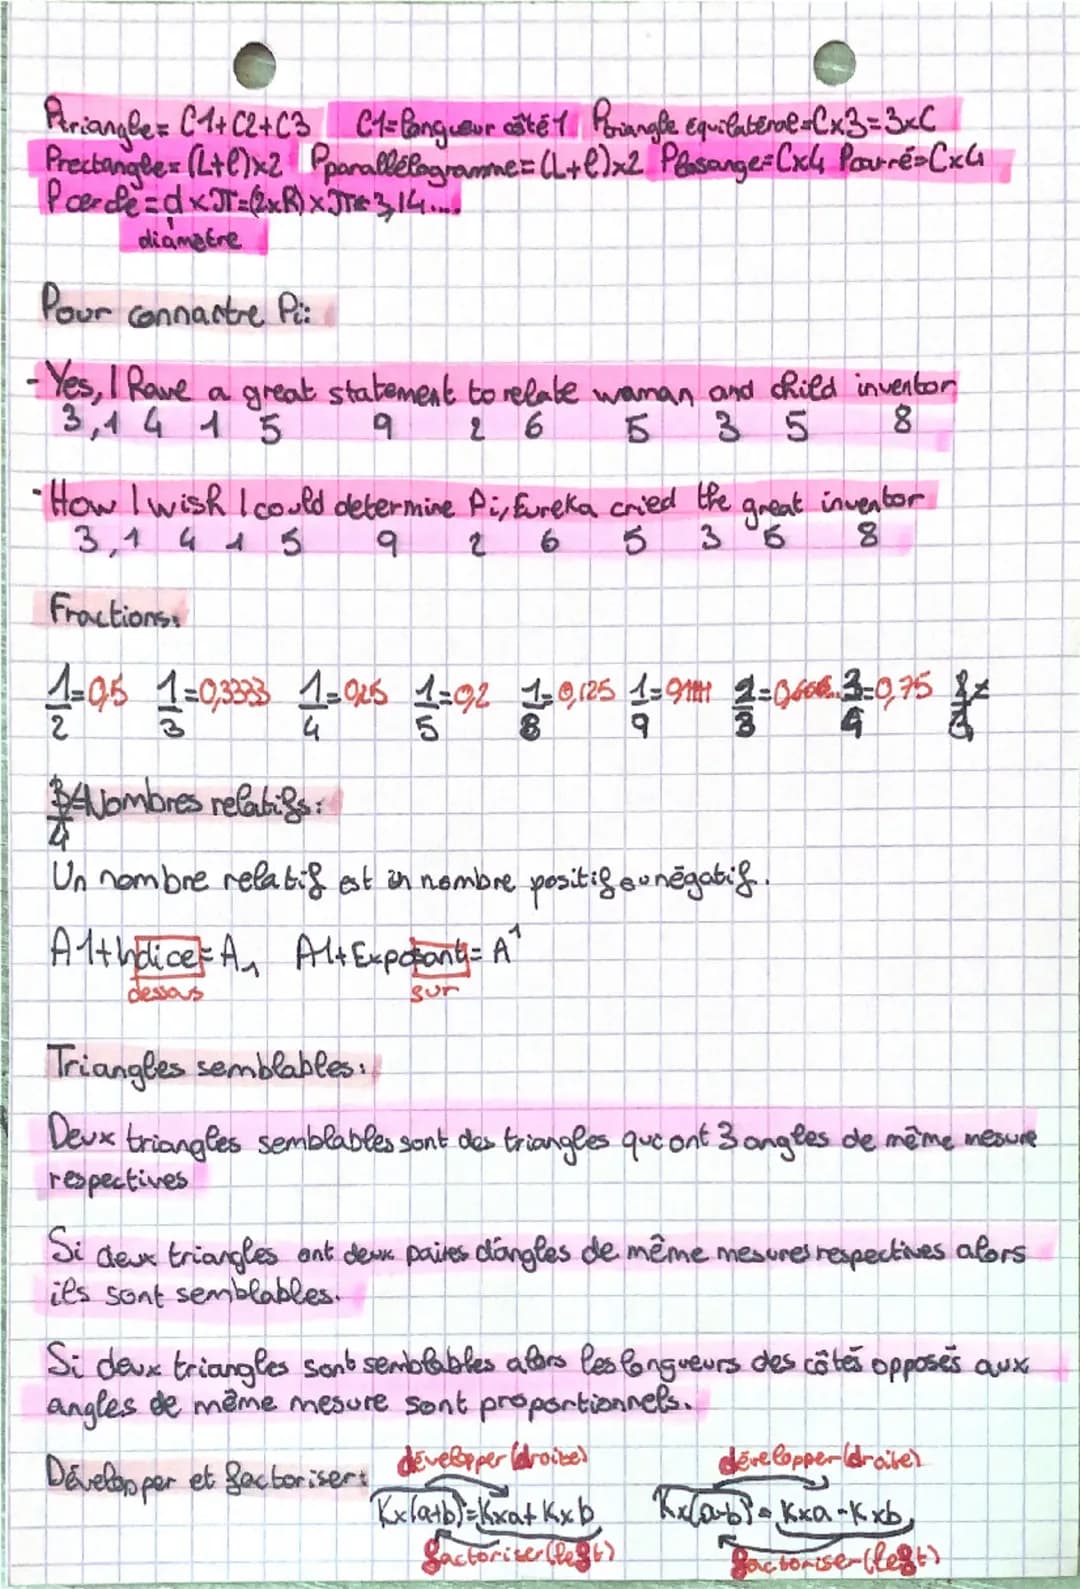 Periangle= C1+C2+C3 C1=longueur côté1 Priangle équilatéral=Cx3=3xC
Prectangle=(L+l)x2 Pparallélogramme=(L+l)x2 Plosange=Cx4 Pcarré=Cx4
Pcercle=dxπ=(2xR)xπ≈3,14....
diamètre
Pour connaotre Pi:
- Yes, I have a great statement to relate woman and child inventor
3,1 4 1 5 9 2 6 5 3 5 8
- How I wish I could determine Pi, Eureka cried the great inventor
3,1 4 1 5 9 2 6 5 3 5 8
Fractions:
1/2=0,5 1/3=0,3333 1/4=0,25 1/5=0,2 1/8=0,125 1/9=0,1111 2/3=0,666.. 3/4=0,75
Nombres relatifs:
Un nombre relatif est un nombre positif ou négatif.
A1+Indice=A₁ A1+Exposant=A¹
dessous sur
Triangles semblables:
Deux triangles semblables sont des triangles que ont 3 angles de même mesure
respectives
Si deux triangles ont deux paires d'angles de même mesures respectives alors
ils sont semblables.
Si deux triangles sont semblables alors les longueurs des côtés opposés aux
angles de même mesure sont proportionnels.
développer (droite) développer (droite)
Développer et factoriser: Kx(a+b)=Kxa+Kxb Kx(a-b)=Kxa-Kxb
factoriser (left) factoriser (left)